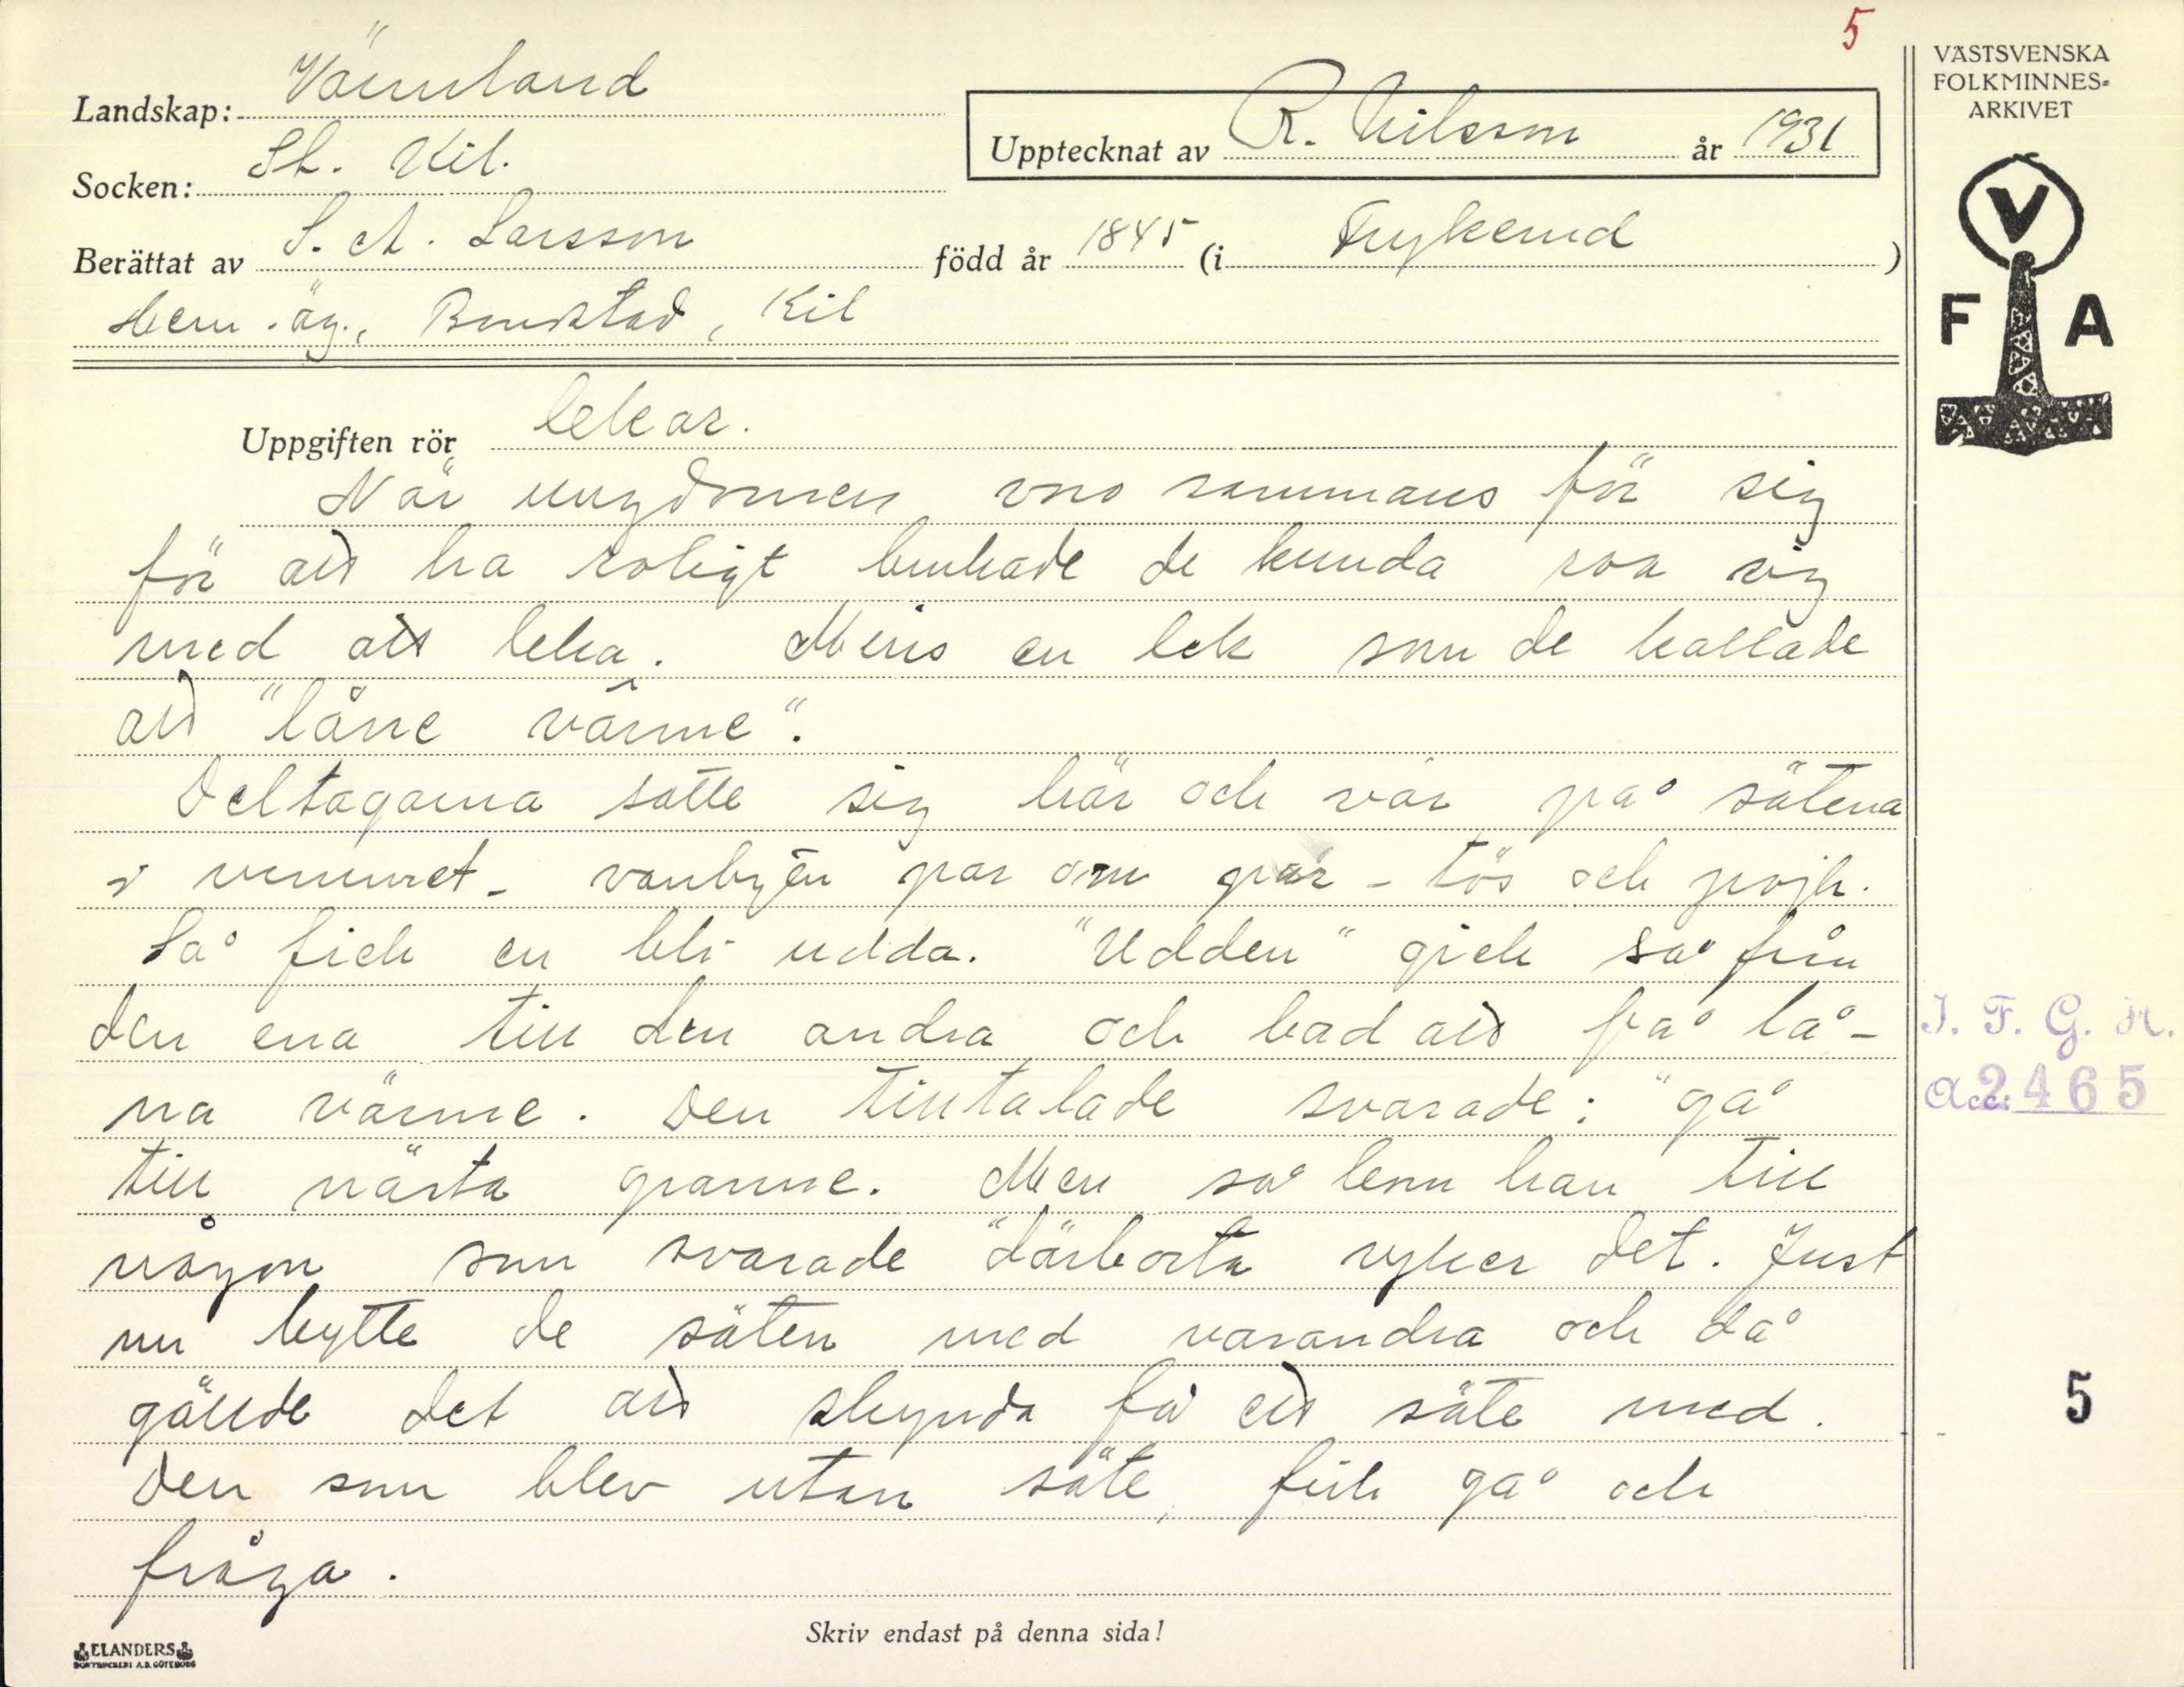 5
VÄSTSVENSKA
FOLKMINNES-
ARKIVET
Landskap: Värmland
Upptecknat av R. Nilsson år 1931
Socken: St. Kil.
Berättat av S. A. Larsson född år 1845 (i Frykerud)
Hem. äg., Kil
V
F A
Uppgiften rör lekar.
När ungdomen vno sammans för sig
för att ha roligt brukade de kunda roa sig
med att leka. Minns en lek som de kallade
att "låne värme".
Deltagarna satte sig här och var på sätena
i rummet - vanligen par om par - tös och pojk.
Så fick en bli udda. "Udden" gick så från
den ena till den andra och bad att få lå-
na värme. Den tilltalade svarade: "gå
till nästa granne. Men så kom han till
någon som svarade "därborta ryker det. Just
nu bytte de säten med varandra och då
gällde det att skynda få ett säte med.
Den som blev utan säte, fick gå och
fråga.
I. F. G. H.
Acc. 2465
5
Skriv endast på denna sida!
ELANDERS
BOKTRYCKERI A.B. GÖTEBORG